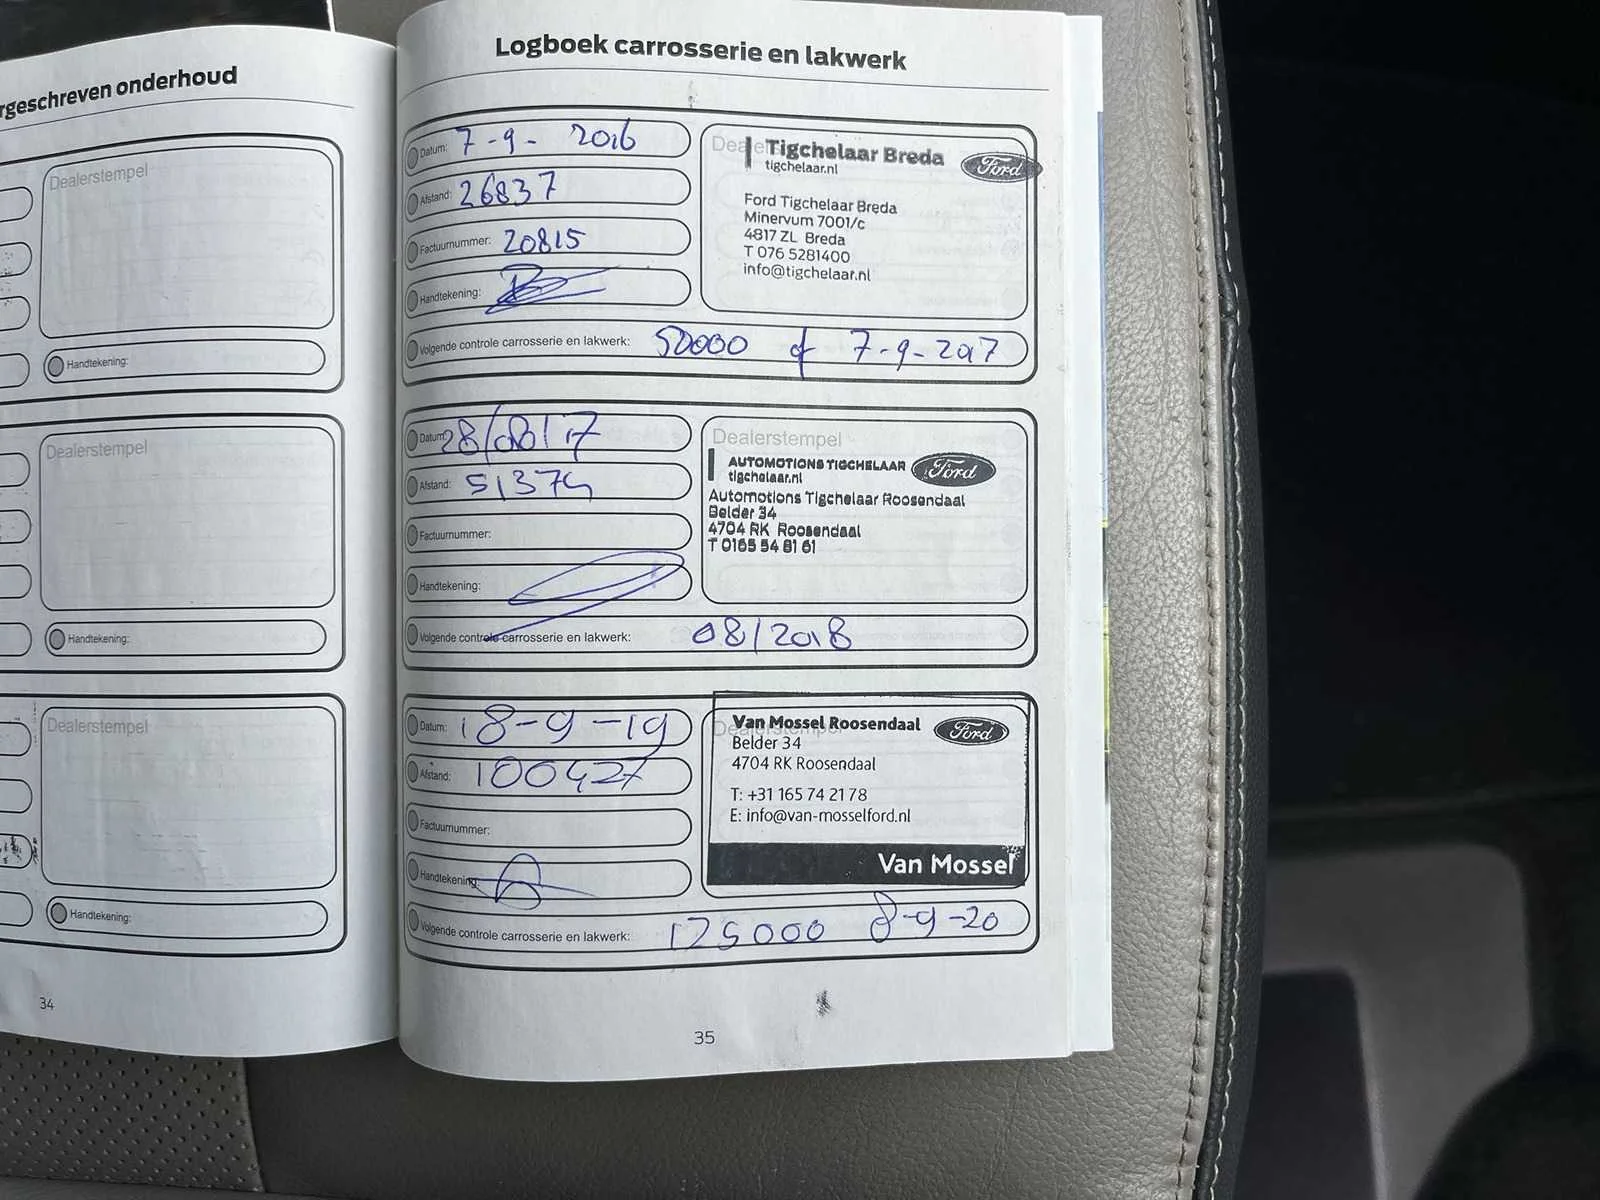 rgeschreven onderhoud
Dealerstempel
Handtekening:
Dealerstempel
Handtekening:
Dealerstempel
Handtekening:
34
Logboek carrosserie en lakwerk
Datum: 7-9- 2016
Afstand: 26837
Factuurnummer: 20815
Handtekening:
Tigchelaar Breda
tigchelaar.nl
Ford
Ford Tigchelaar Breda
Minervum 7001/c
4817 ZL Breda
T 076 5281400
info@tigchelaar.nl
Volgende controle carrosserie en lakwerk: 50000 of 7-9-2017
Datum: 28/08/17
Afstand: 51374
Factuurnummer:
Handtekening:
Dealerstempel
AUTOMOTIONS TIGCHELAAR
tigchelaar.nl
Ford
Automotions Tigchelaar Roosendaal
Belder 34
4704 RK Roosendaal
T 0165 54 81 61
Volgende controle carrosserie en lakwerk: 08/2018
Datum: 18-9-19
Afstand: 100427
Factuurnummer:
Handtekening:
Van Mossel Roosendaal
Ford
Belder 34
4704 RK Roosendaal
T: +31 165 74 21 78
E: info@van-mosselford.nl
Van Mossel
Volgende controle carrosserie en lakwerk: 125000 8-9-20
35